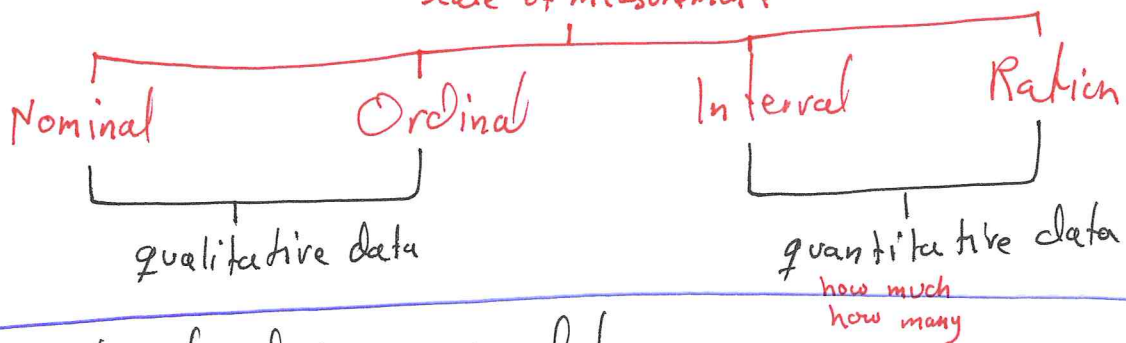 scale of measurement
Nominal Ordinal Interval Ration
qualitative data quantitative data
how much
how many